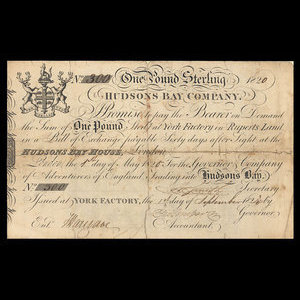 No. 300 One Pound Sterling 1820
HUDSONS BAY COMPANY.
Promise to pay the Bearer on Demand
the Sum of One Pound Sterl.g at York Factory in Ruperts Land
in a Bill of Exchange payable Sixty days after Sight at the
HUDSONS BAY HOUSE, London
Dated the of May 1820 For the Governor & Company
of Adventurers of England trading into Hudsons Bay.
No. 300 Secretary
Issued at YORK FACTORY, the day of September by
Governor
Ent. Hargrave Accountant.